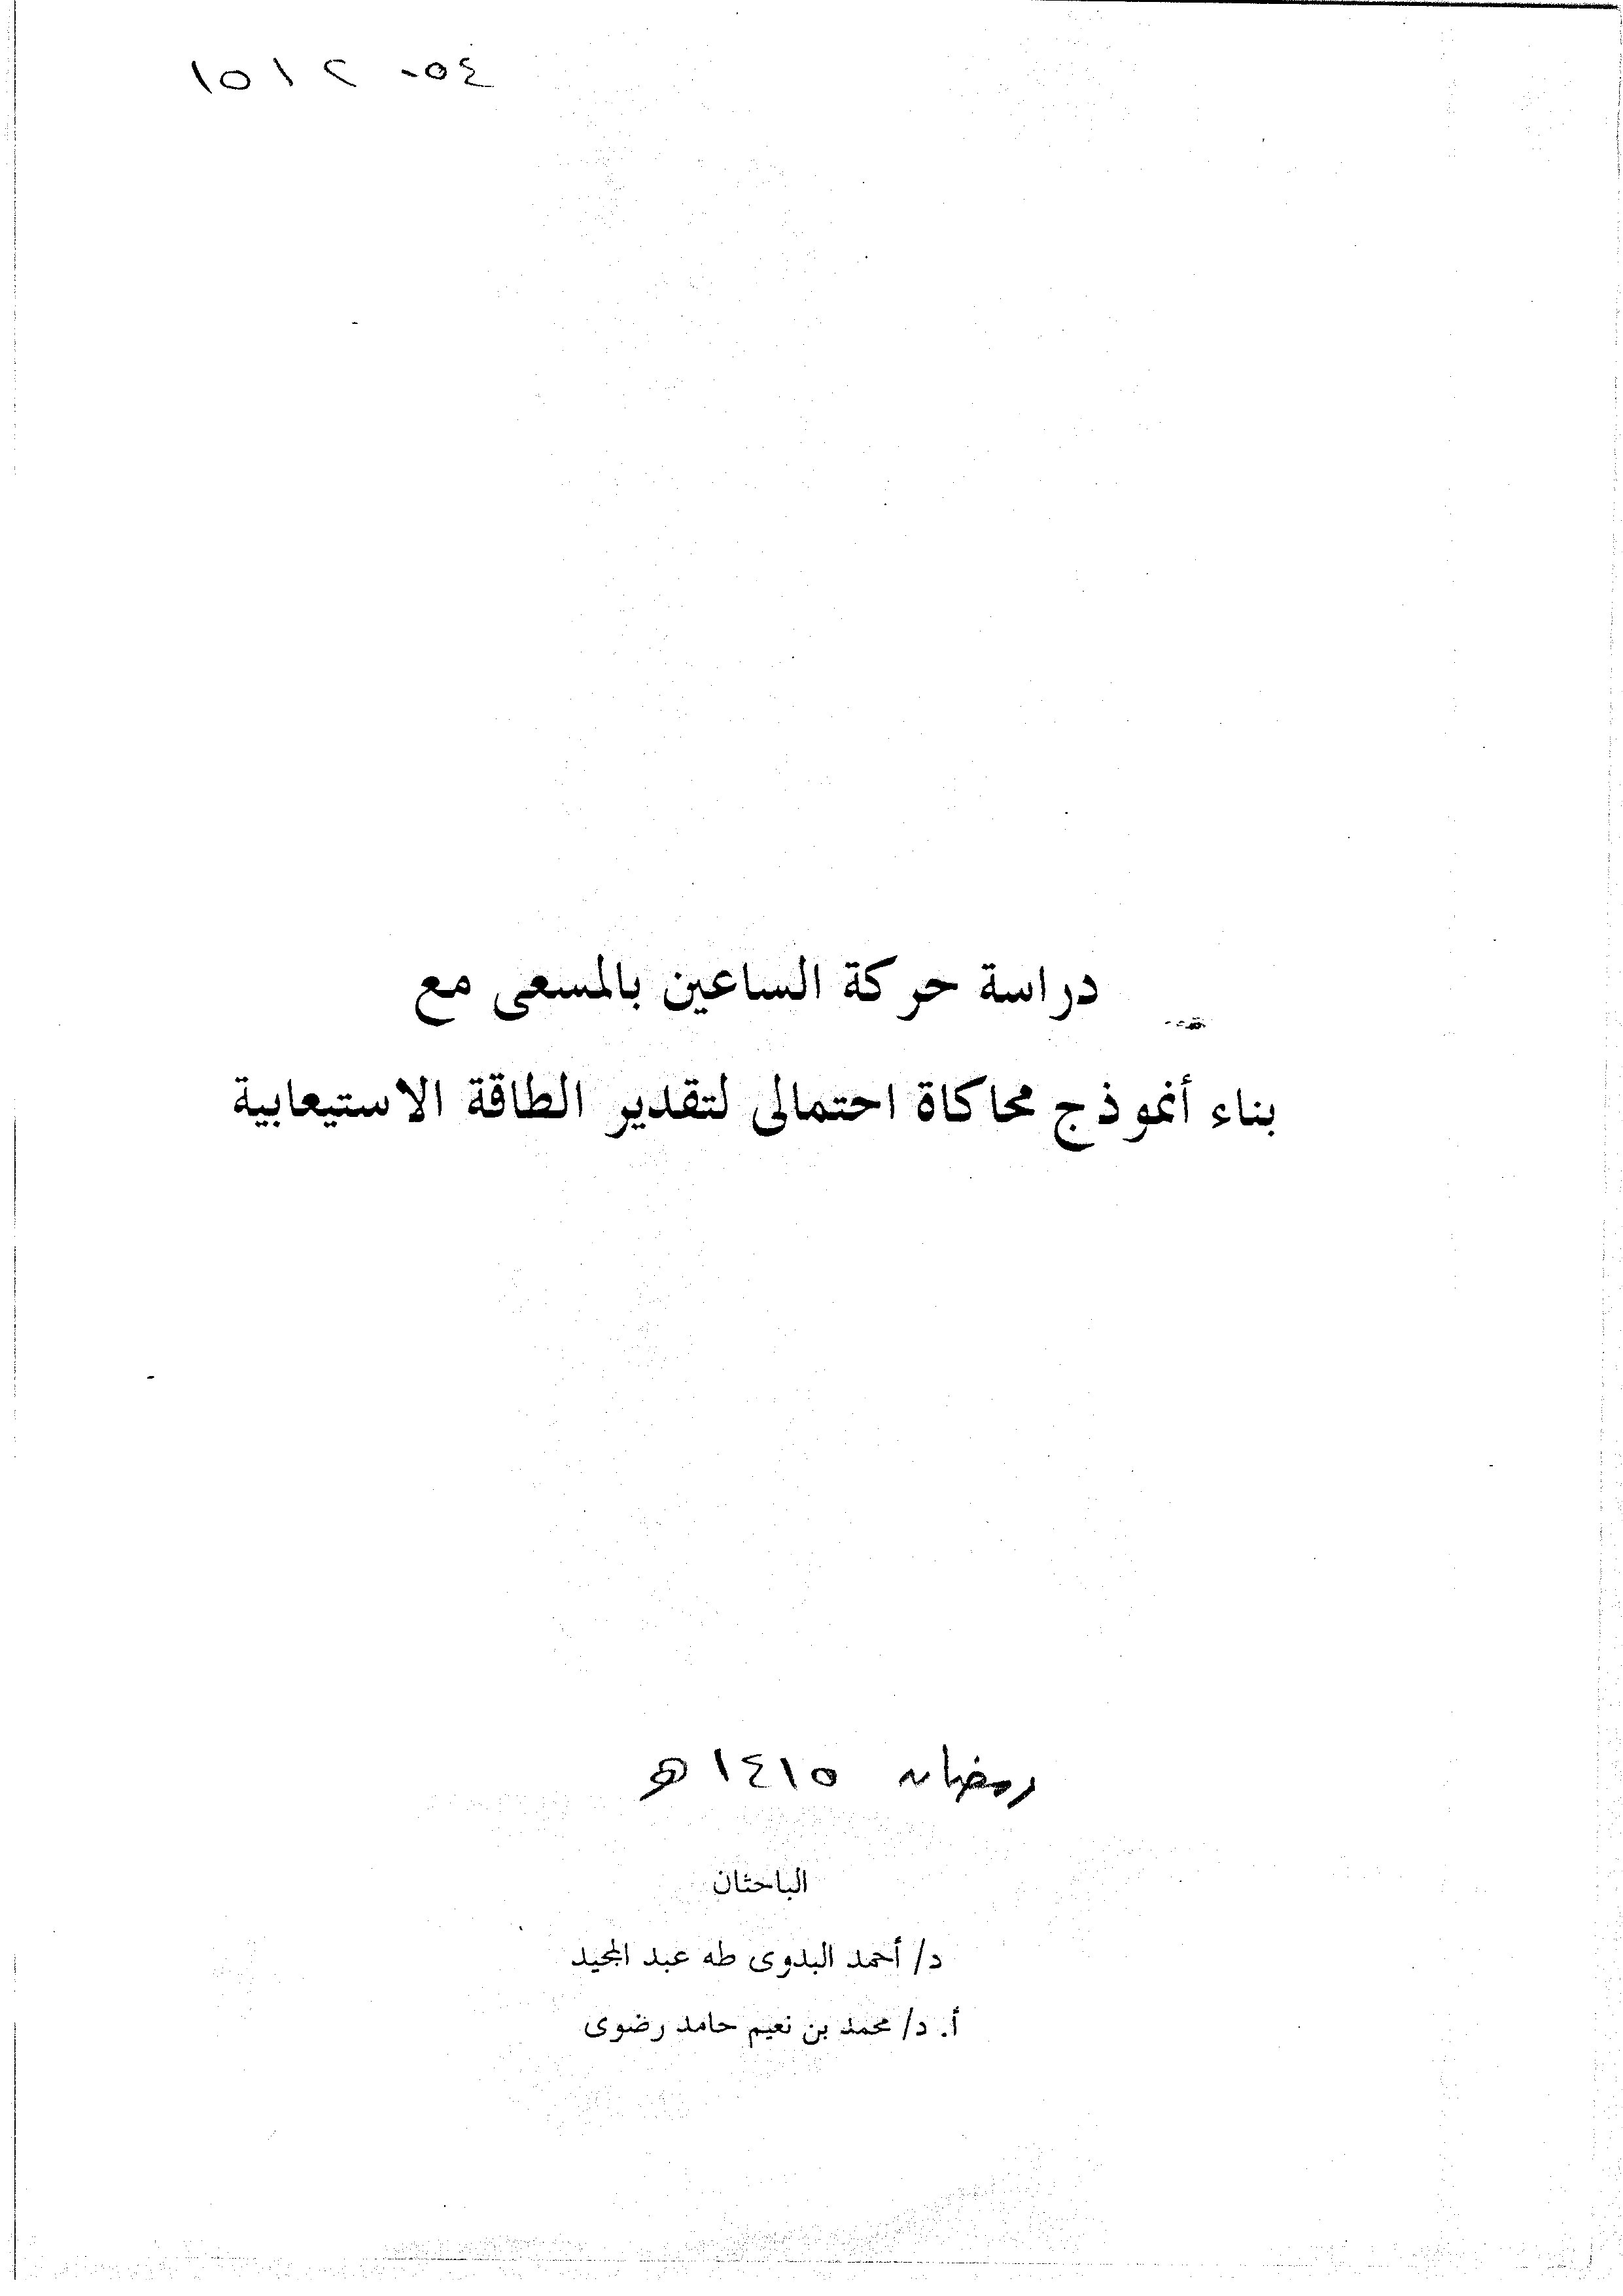 ١٥١٢٠٥٤
دراسة حركة الساعين بالمسعى مع
بناء أنموذج محاكاة احتمالى لتقدير الطاقة الاستيعابية
رمضان ١٤١٥ هـ
الباحثان
د/ أحمد البدوى طه عبد المجيد
أ. د/ محمد بن نعيم حامد رضوى